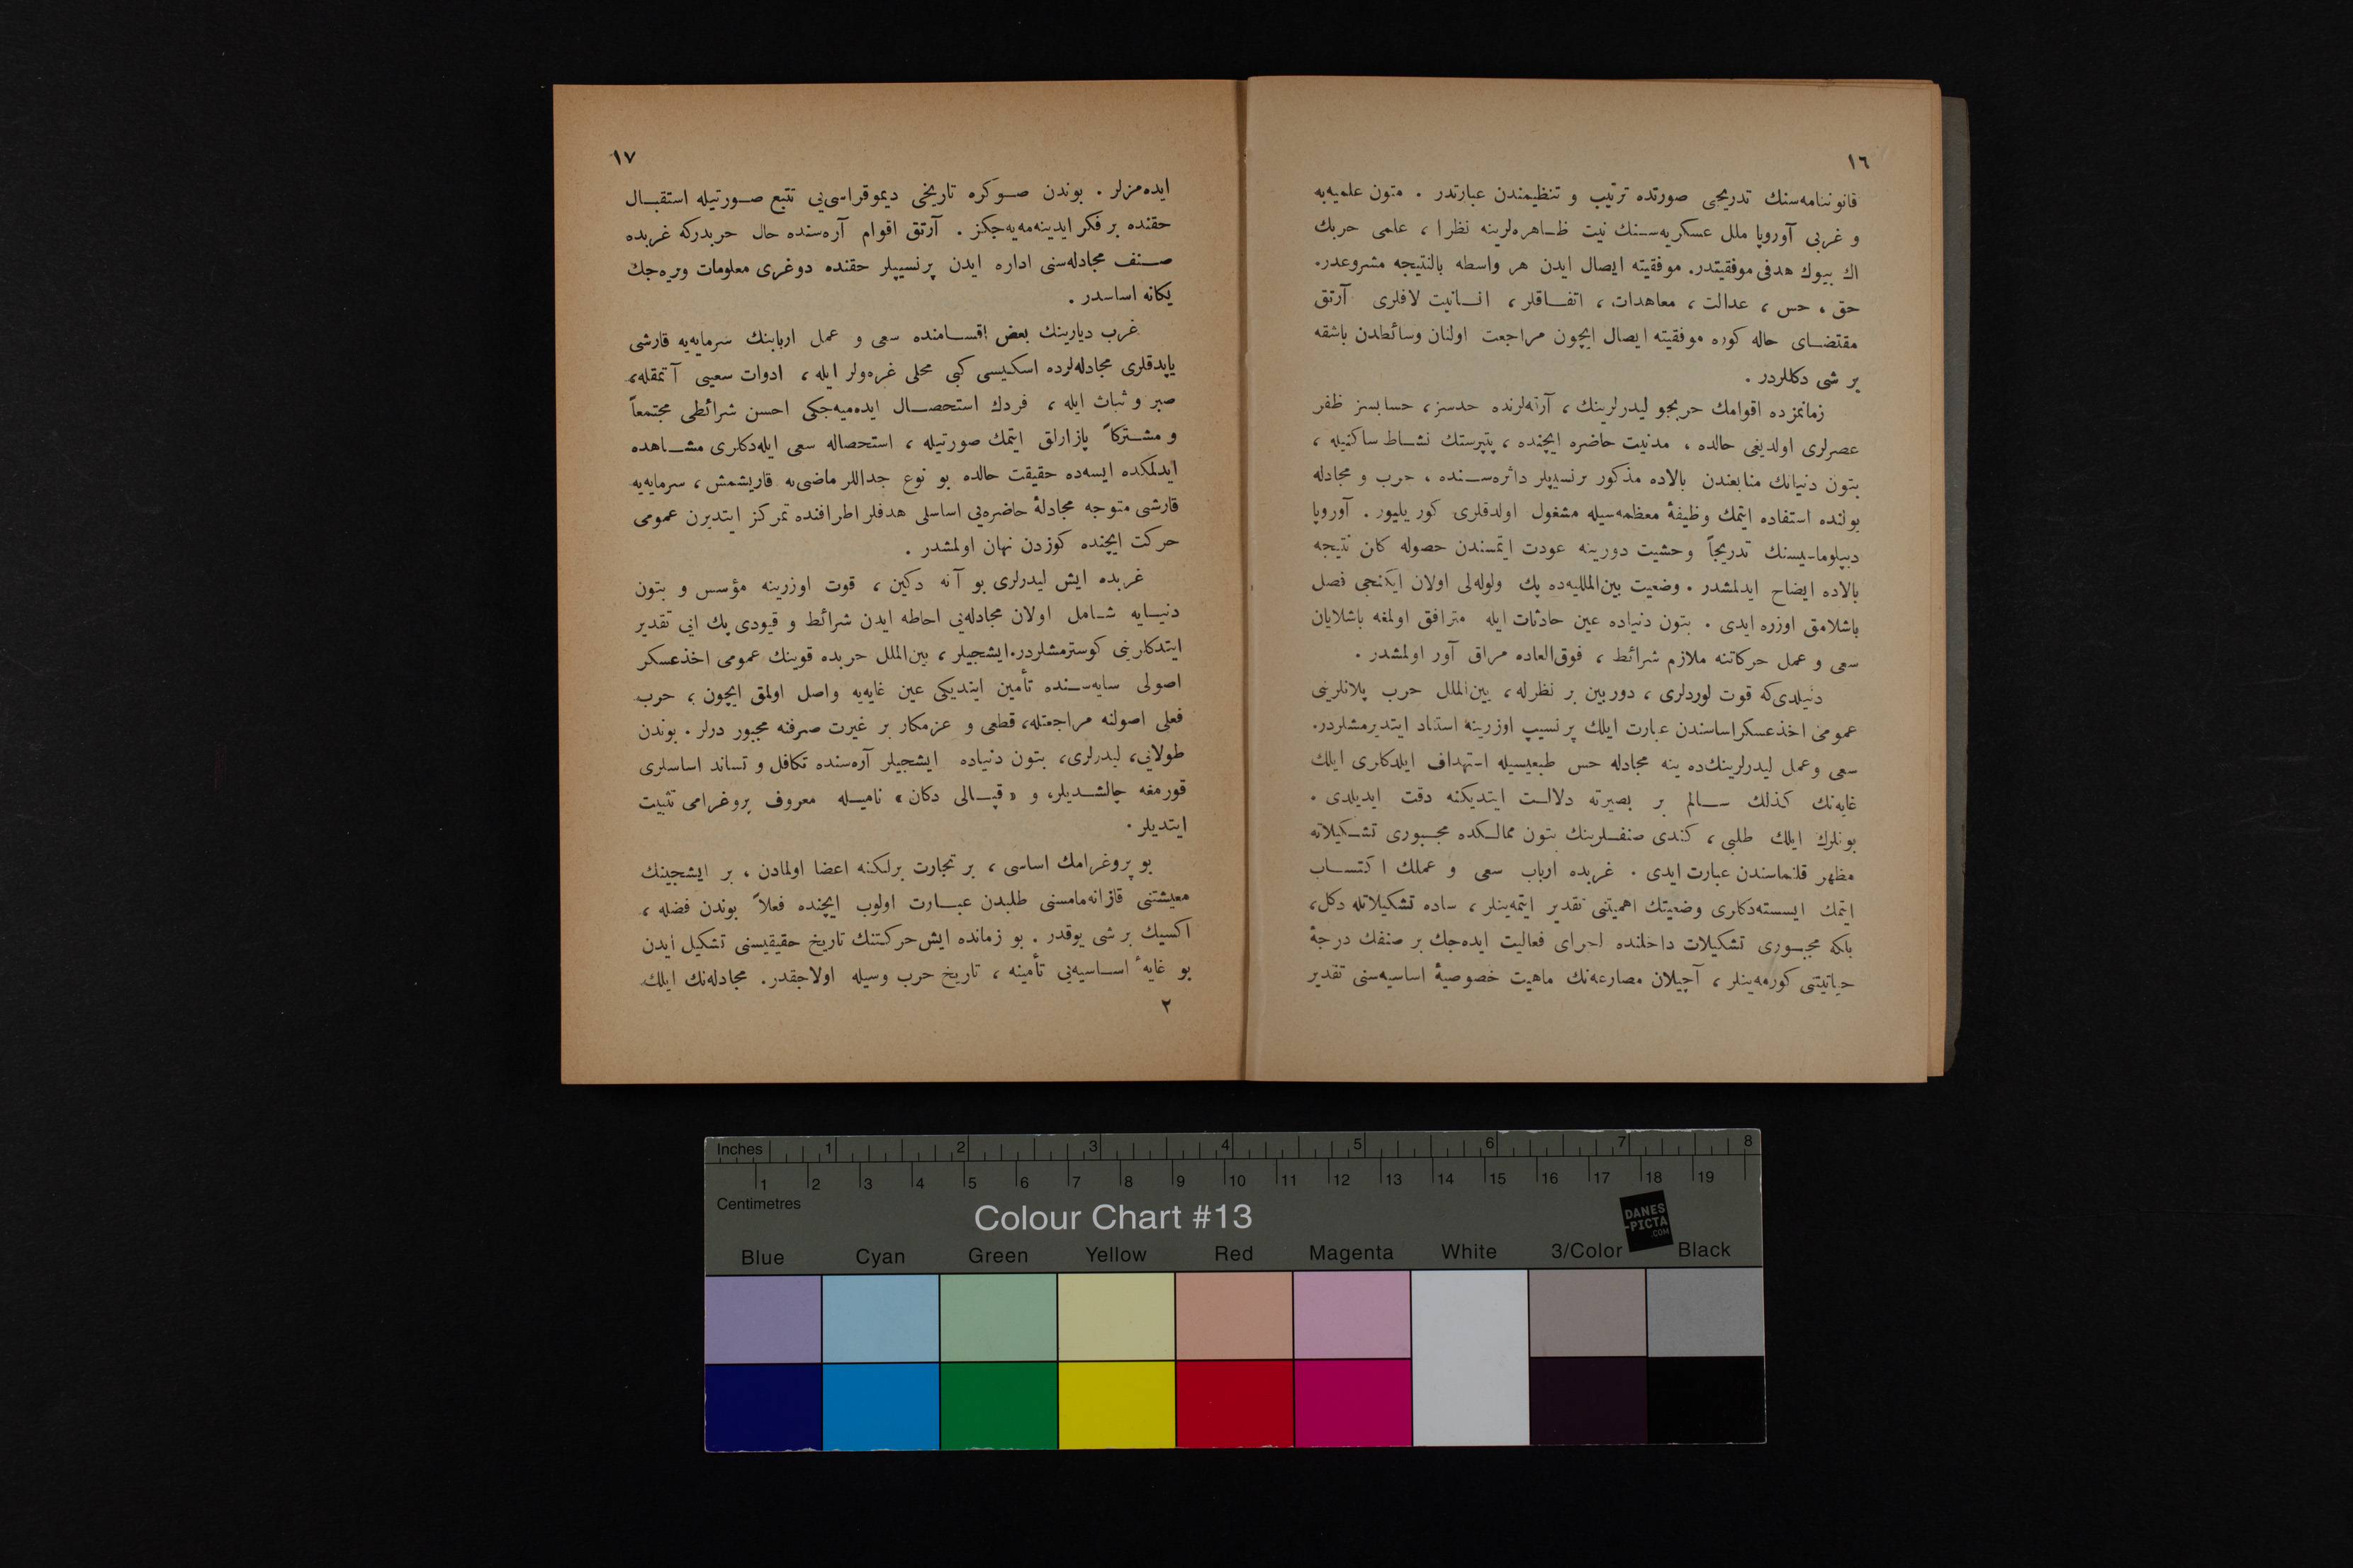 ١٦
قانوننامه‌سنك تدريجی صورتده ترتيب و تنظيمندن عبارتدر . متون علميه‌يه
و غربی آوروپا ملل عسكريه‌سنك نيت ظاهره‌لرينه نظرا ، علمی حربك
اك بيوك هدفی موفقيتدر. موفقيته ايصال ايدن هر واسطه بالنتيجه مشروعدر.
حق ، حس ، عدالت ، معاهدات ، اتفاقلر ، انسانيت لافلری آرتق
مقتضای حاله كوره موفقيته ايصال ايچون مراجعت اولنان وسائطدن باشقه
بر شی دكللردر .
زمانمزده اقوامك حربجو ليدرلرينك ، آرتەلرنده حدسز ، حسابسز ظفر
عصرلری اولديغی حالده ، مدنيت حاضره ايچنده ، پتپرستك نشاط ساكتيله ،
بتون دنيانك منابعندن بالاده مذكور پرنسيپلر دائره‌سنده ، حرب و مجادله
يولنده استفاده ايتمك وظيفۀ معظمه‌سيله مشغول اولدقلری كوريليور . آوروپا
ديپلوماسيسنك تدريجاً وحشيت دورينه عودت ايتمسندن حصوله كلن نتيجه
بالاده ايضاح ايدلمشدر . وضعيت بين‌الملليه‌ده پك ولوله‌لی اولان ايكنجی فصل
باشلامق اوزره ايدی . بتون دنياده عين حادثات ايله مترافق اولمغه باشلايان
سعی و عمل حركاتنه ملازم شرائط ، فوق‌العاده مراق آور اولمشدر .
دنيلدی‌كه قوت لوردلری ، دوربين بر نظرله ، بين‌الملل حرب پلانلرينی
عمومی اخذعسكر اساسندن عبارت ايلك پرنسيپ اوزرينه استناد ايتديرمشلردر.
سعی وعمل ليدرلرينك‌ده ينه مجادله حس طبعيسيله استهداف ايلدكلری ايلك
غايه‌نك كذلك سالم بر بصيرته دلالت ايتديكنه دقت ايديلدی .
بونلرك ايلك طلبی ، كندی صنفلرينك بتون ممالكده مجبوری تشكيلاته
مظهر قلنماسندن عبارت ايدی . غربده ارباب سعی و عملك اكتساب
ايتمك ايسته‌دكلری وضعيتك اهميتنی تقدير ايتمه‌ينلر ، ساده تشكيلاتله دكل،
بلكه مجبوری تشكيلات داخلنده اجرای فعاليت ايده‌جك بر صنفك درجۀ
حياتيتنی كورمه‌ينلر ، آچيلان مصارعه‌نك ماهيت خصوصيۀ اساسيه‌سنی تقدير
١٧
ايده‌مزلر . بوندن صوكره تاريخی ديموقراسی‌يی تتبع صورتيله استقبال
حقنده بر فكر ايدينه‌مه‌يه‌جكز . آرتق اقوام آره‌سنده حال حربدركه غربده
صنف مجادله‌سنی اداره ايدن پرنسيپلر حقنده دوغری معلومات ويره‌جك
يكانه اساسدر .
غرب ديارينك بعض اقسامنده سعی و عمل اربابنك سرمايه‌يه قارشی
ياپدقلری مجادله‌لرده اسكيسی كبی محلی غره‌ولر ايله ، ادوات سعيی آتمقله،
صبر و ثبات ايله ، فردك استحصال ايده‌ميه‌جكی احسن شرائطی مجتمعاً
و مشتركاً پازارلق ايتمك صورتيله ، استحصاله سعی ايله‌دكلری مشاهده
ايدلمكده ايسه‌ده حقيقت حالده بو نوع جداللر ماضی‌يه قاريشمش ، سرمايه‌يه
قارشی متوجه مجادلۀ حاضره‌يی اساسلی هدفلر اطرافنده تمركز ايتديرن عمومی
حركت ايچنده كوزدن نهان اولمشدر .
غربده ايش ليدرلری بو آنه دكين ، قوت اوزرينه مؤسس و بتون
دنيايه شامل اولان مجادله‌يی احاطه ايدن شرائط و قيودی پك ايی تقدير
ايتدكلرينی كوسترمشلردر.ايشجيلر ، بين‌الملل حربده قوينك عمومی اخذعسكر
اصولی سايه‌سنده تأمين ايتديكی عين غايه‌يه واصل اولمق ايچون ، حرب
فعلی اصولنه مراجعتله، قطعی و عزمكار بر غيرت صرفنه مجبور درلر . بوندن
طولايی، ليدرلری، بتون دنياده ايشجيلر آره‌سنده تكافل و تساند اساسلری
قورمغه چالشديلر، و « قپالی دكان » ناميله معروف پروغرامی تثبيت
ايتديلر .
بو پروغرامك اساسی ، بر تجارت برلكنه اعضا اولمادن ، بر ايشجينك
معيشتنی قازانه‌مامسنی طلبدن عبارت اولوب ايچنده فعلاً بوندن فضله ،
اكسيك بر شی يوقدر . بو زمانده ايش حركتنك تاريخ حقيقيسنی تشكيل ايدن
بو غايۀ اساسيه‌يی تأمينه ، تاريخ حرب وسيله اولاجقدر. مجادله‌نك ايلك
٢
Inches 1 2 3 4 5 6 7 8
1 2 3 4 5 6 7 8 9 10 11 12 13 14 15 16 17 18 19
Centimetres
Colour Chart #13
DANES
-PICTA
.COM
Blue Cyan Green Yellow Red Magenta White 3/Color Black